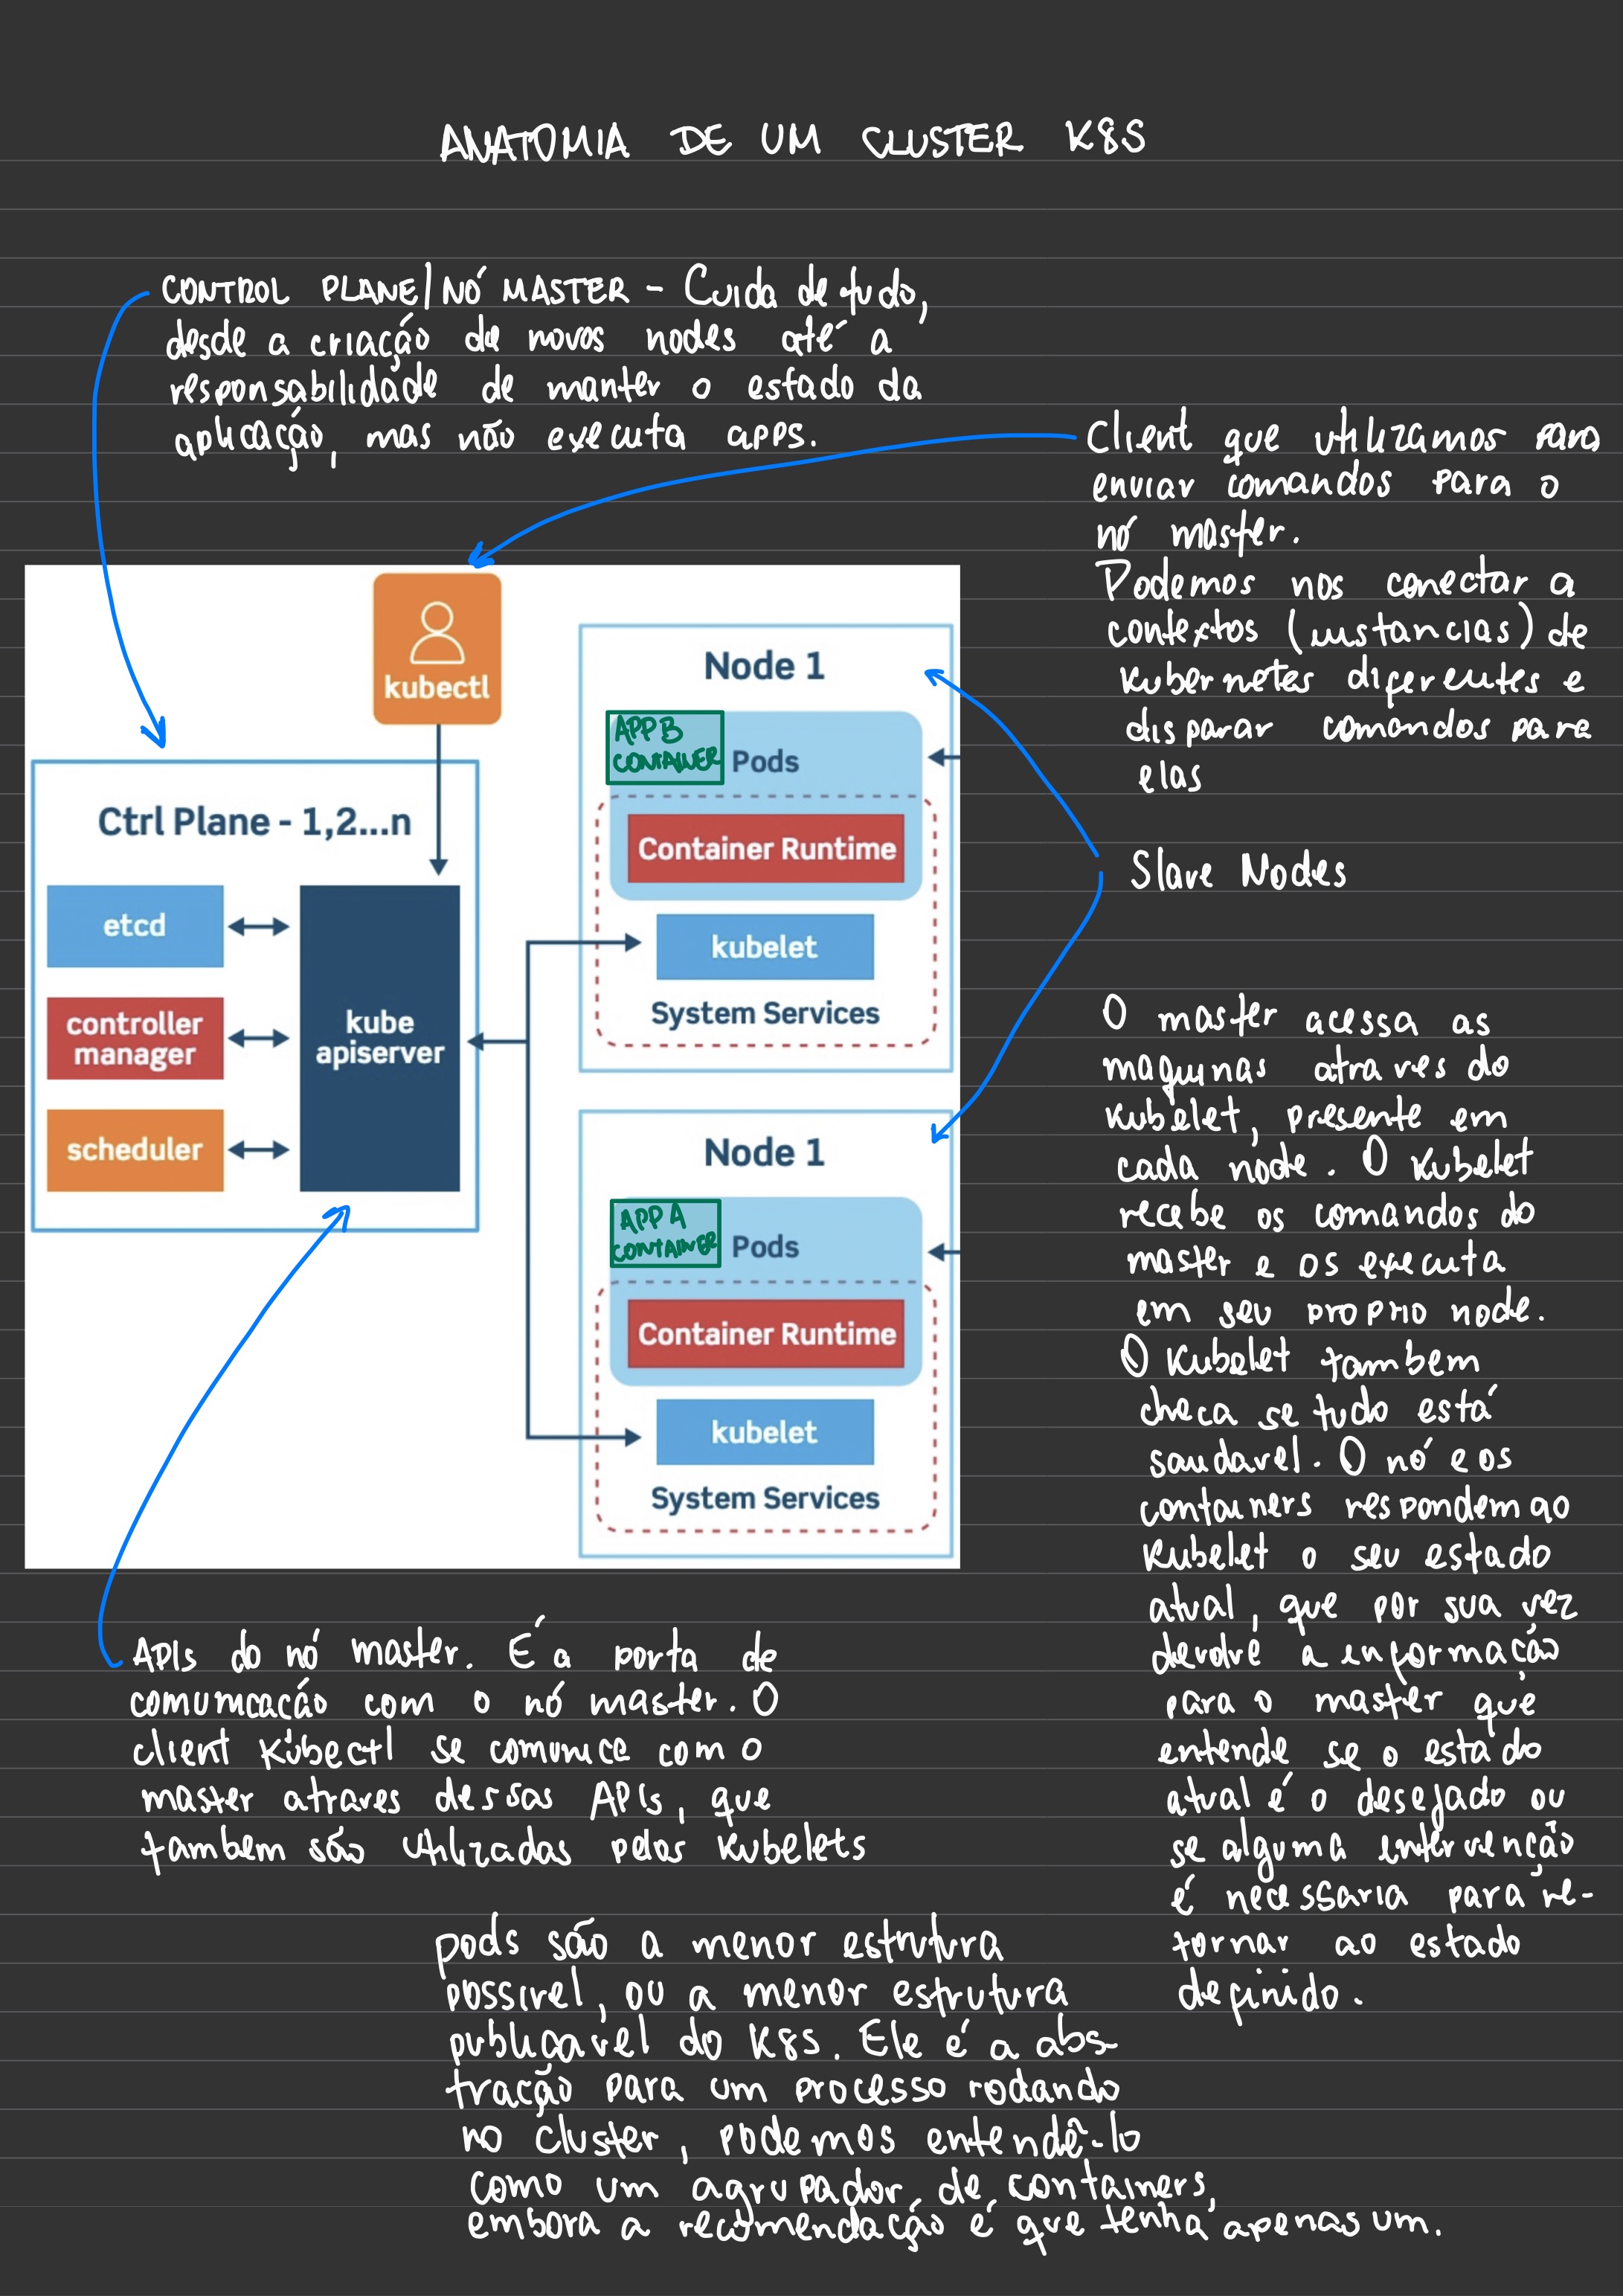 ANATOMIA DE UM CLUSTER K8S
CONTROL PLANE/NÓ MASTER - Cuida de tudo,
desde a criação de novos nodes até a
responsabilidade de manter o estado da
aplicação, mas não executa apps.
Client que utilizamos para
enviar comandos para o
nó master.
Podemos nos conectar a
contextos (instancias) de
Kubernetes diferentes e
disparar comandos para
elas
kubectl
Ctrl Plane - 1,2...n
etcd
controller
manager
scheduler
kube
apiserver
Node 1
APP B
CONTAINER
Pods
Container Runtime
kubelet
System Services
Node 1
APP A
CONTAINER
Pods
Container Runtime
kubelet
System Services
Slave Nodes
O master acessa as
maquinas atraves do
Kubelet, presente em
cada node. O Kubelet
recebe os comandos do
master e os executa
em seu proprio node.
O Kubelet tambem
checa se tudo está
saudavel. O nó e os
containers respondem ao
Kubelet o seu estado
atual, que por sua vez
devolve a informação
para o master que
entende se o estado
atual é o desejado ou
se alguma intervenção
é necessaria para re-
tornar ao estado
definido.
APIs do nó master. É a porta de
comunicação com o nó master. O
client Kubectl se comunica com o
master atraves dessas APIs, que
tambem são utilizadas pelos Kubelets
pods são a menor estrutura
possivel, ou a menor estrutura
publicavel do K8S. Ele é a abs-
tração para um processo rodando
no cluster, podemos entendê-lo
como um agrupador de containers,
embora a recomendação é que tenha apenas um.